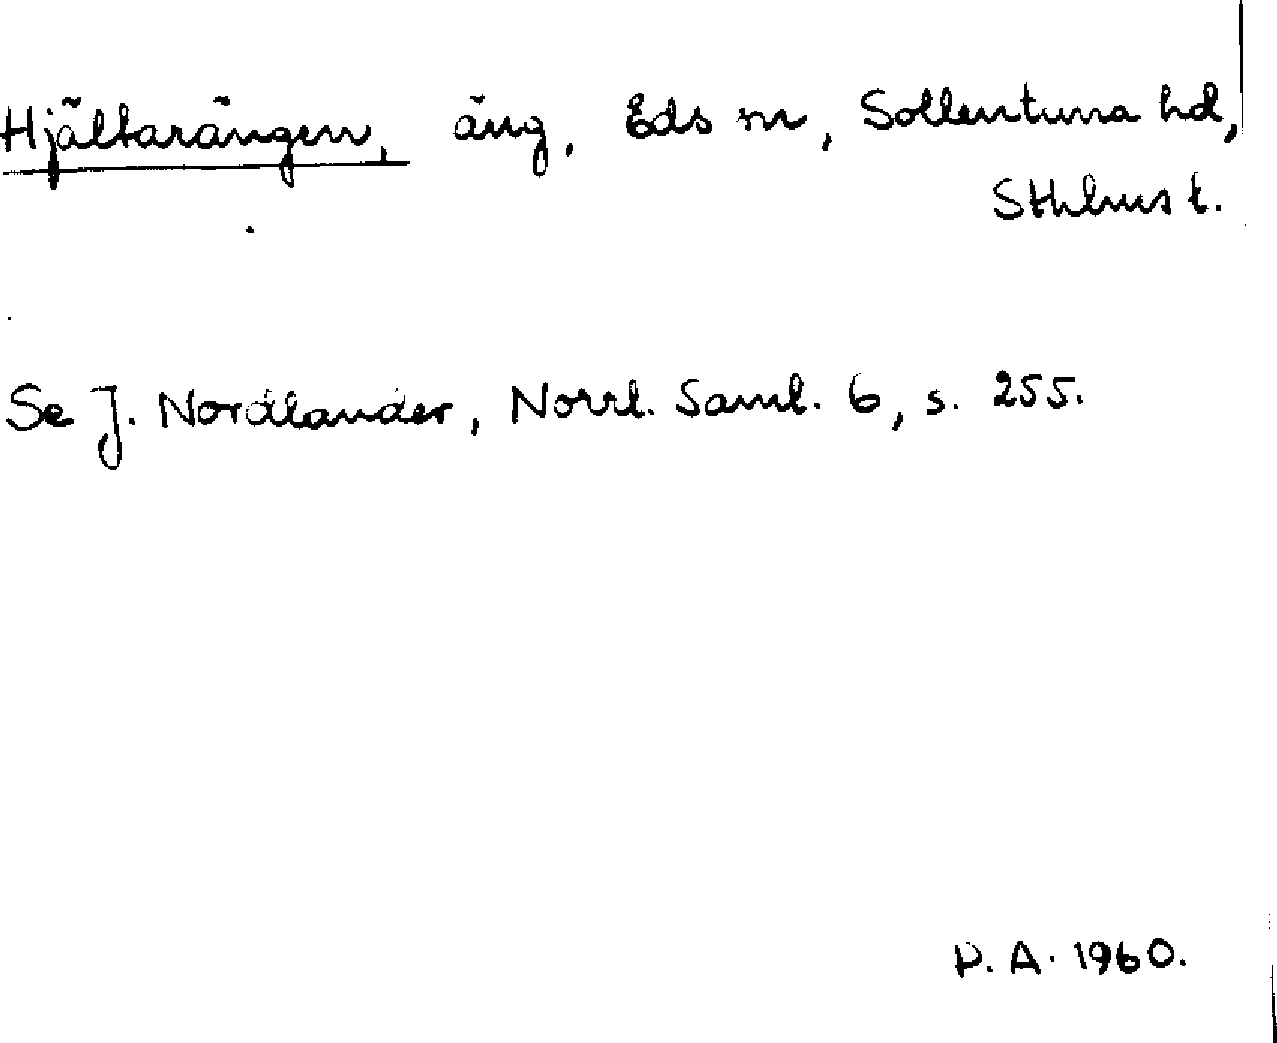 Hjältarängen, äng, Eds sn, Sollentuna hd,
Sthlms l.
Se J. Nordlander, Norrl. Saml. 6, s. 255.
D. A. 1960.